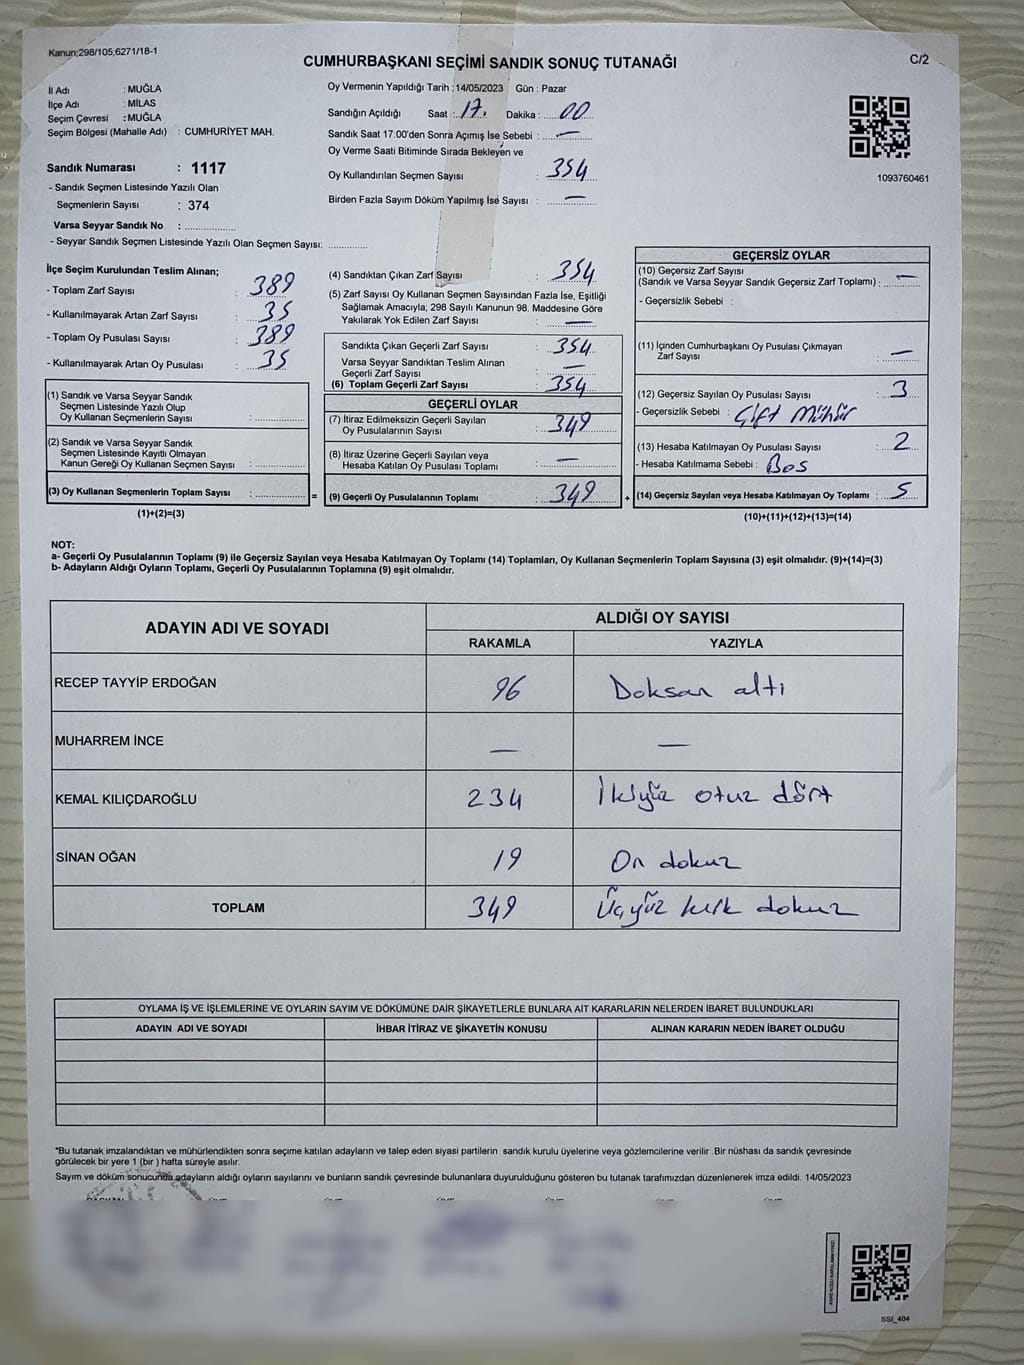 Kanun;298/105,6271/18-1
CUMHURBAŞKANI SEÇİMİ SANDIK SONUÇ TUTANAĞI
C/2
İl Adı : MUĞLA
İlçe Adı : MİLAS
Seçim Çevresi : MUĞLA
Seçim Bölgesi (Mahalle Adı) : CUMHURİYET MAH.
Sandık Numarası : 1117
- Sandık Seçmen Listesinde Yazılı Olan
Seçmenlerin Sayısı : 374
Varsa Seyyar Sandık No :
- Seyyar Sandık Seçmen Listesinde Yazılı Olan Seçmen Sayısı:
Oy Vermenin Yapıldığı Tarih : 14/05/2023 Gün : Pazar
Sandığın Açıldığı Saat : 17. Dakika : 00
Sandık Saat 17:00'den Sonra Açımış İse Sebebi : —
Oy Verme Saati Bitiminde Sırada Bekleyen ve
Oy Kullandırılan Seçmen Sayısı : 354
Birden Fazla Sayım Döküm Yapılmış İse Sayısı : —
1093760461
İlçe Seçim Kurulundan Teslim Alınan;
- Toplam Zarf Sayısı : 389
- Kullanılmayarak Artan Zarf Sayısı : 35
- Toplam Oy Pusulası Sayısı : 389
- Kullanılmayarak Artan Oy Pusulası : 35
(1) Sandık ve Varsa Seyyar Sandık
Seçmen Listesinde Yazılı Olup
Oy Kullanan Seçmenlerin Sayısı :
(2) Sandık ve Varsa Seyyar Sandık
Seçmen Listesinde Kayıtlı Olmayan
Kanun Gereği Oy Kullanan Seçmen Sayısı :
(3) Oy Kullanan Seçmenlerin Toplam Sayısı : =
(1)+(2)=(3)
(4) Sandıktan Çıkan Zarf Sayısı : 354
(5) Zarf Sayısı Oy Kullanan Seçmen Sayısından Fazla İse, Eşitliği
Sağlamak Amacıyla; 298 Sayılı Kanunun 98. Maddesine Göre
Yakılarak Yok Edilen Zarf Sayısı : —
Sandıkta Çıkan Geçerli Zarf Sayısı : 354
Varsa Seyyar Sandıktan Teslim Alınan
Geçerli Zarf Sayısı : —
(6) Toplam Geçerli Zarf Sayısı : 354
GEÇERLİ OYLAR
(7) İtiraz Edilmeksizin Geçerli Sayılan
Oy Pusulalarının Sayısı : 349
(8) İtiraz Üzerine Geçerli Sayılan veya
Hesaba Katılan Oy Pusulası Toplamı : —
(9) Geçerli Oy Pusulalarının Toplamı : 349 +
GEÇERSİZ OYLAR
(10) Geçersiz Zarf Sayısı
(Sandık ve Varsa Seyyar Sandık Geçersiz Zarf Toplamı) : —
- Geçersizlik Sebebi :
(11) İçinden Cumhurbaşkanı Oy Pusulası Çıkmayan
Zarf Sayısı : —
(12) Geçersiz Sayılan Oy Pusulası Sayısı : 3
- Geçersizlik Sebebi : Çift Mühür
(13) Hesaba Katılmayan Oy Pusulası Sayısı : 2
- Hesaba Katılmama Sebebi : Bos
(14) Geçersiz Sayılan veya Hesaba Katılmayan Oy Toplamı : 5
(10)+(11)+(12)+(13)=(14)
NOT:
a- Geçerli Oy Pusulalarının Toplamı (9) ile Geçersiz Sayılan veya Hesaba Katılmayan Oy Toplamı (14) Toplamları, Oy Kullanan Seçmenlerin Toplam Sayısına (3) eşit olmalıdır. (9)+(14)=(3)
b- Adayların Aldığı Oyların Toplamı, Geçerli Oy Pusulalarının Toplamına (9) eşit olmalıdır.
ADAYIN ADI VE SOYADI ALDIĞI OY SAYISI
RAKAMLA YAZIYLA
RECEP TAYYİP ERDOĞAN 96 Doksan altı
MUHARREM İNCE — —
KEMAL KILIÇDAROĞLU 234 İkiyüz otuz dört
SİNAN OĞAN 19 On dokuz
TOPLAM 349 Üçyüz kırk dokuz
OYLAMA İŞ VE İŞLEMLERİNE VE OYLARIN SAYIM VE DÖKÜMÜNE DAİR ŞİKAYETLERLE BUNLARA AİT KARARLARIN NELERDEN İBARET BULUNDUKLARI
ADAYIN ADI VE SOYADI İHBAR İTİRAZ VE ŞİKAYETİN KONUSU ALINAN KARARIN NEDEN İBARET OLDUĞU
*Bu tutanak imzalandıktan ve mühürlendikten sonra seçime katılan adayların ve talep eden siyasi partilerin sandık kurulu üyelerine veya gözlemcilerine verilir .Bir nüshası da sandık çevresinde
görülecek bir yere 1 (bir ) hafta süreyle asılır.
Sayım ve döküm sonucunda adayların aldığı oyların sayılarını ve bunların sandık çevresinde bulunanlara duyurulduğunu gösteren bu tutanak tarafımızdan düzenlenerek imza edildi. 14/05/2023
SSI_404